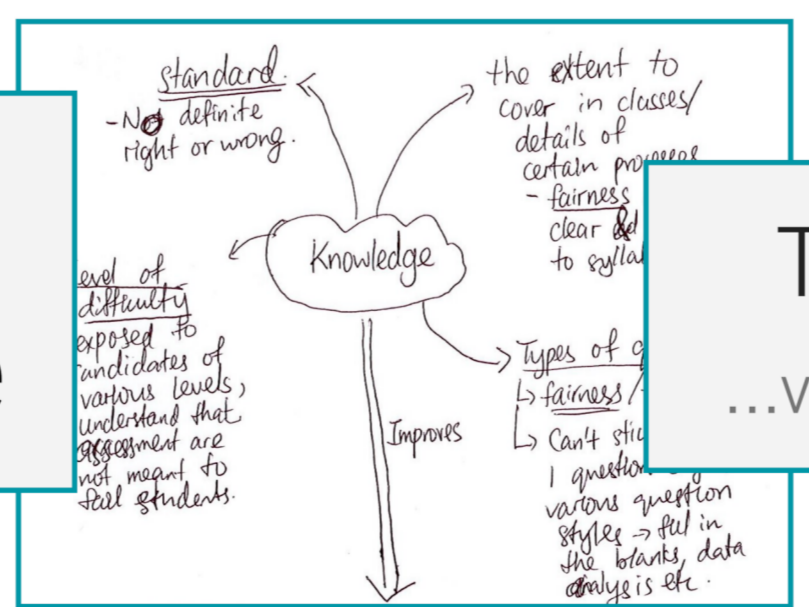 standard.
-No definite
right or wrong.
the extent to
cover in classes/
details of
certain processes
- fairness
clear
to
Knowledge
level of
difficulty
exposed to
candidates of
various levels,
understand that
assessment are
not meant to
fail students.
Improves
Types of
↳ fairness /
↳ Can't
1 question
various question
styles → fill in
the blanks, data
analysis etc.
T
...v
e